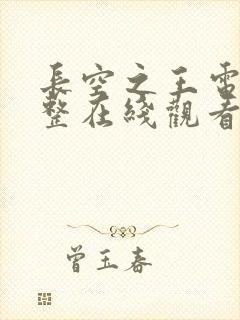 長空之王電
整在綫觀看
曾玉春